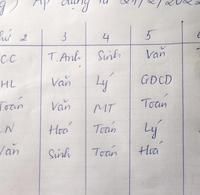 Áp dụng từ 21/2/2022
Thứ 2 3 4 5
CC T.Anh Sinh Văn
HL Văn Lý GDCD
Toán Văn MT Toán
N Hoá Toán Lý
Văn Sinh Toán Hoá